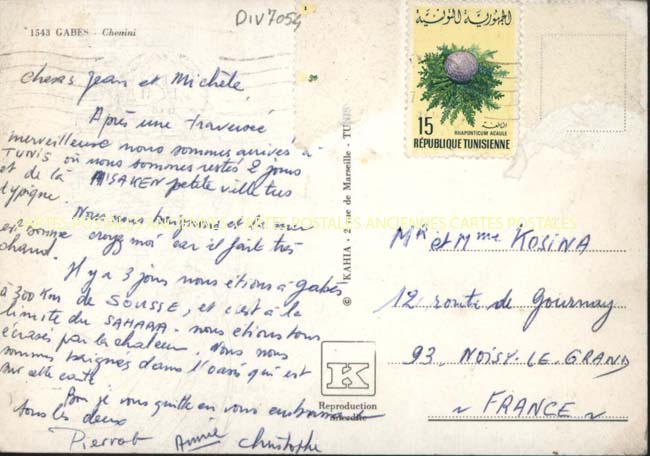 DIV7054
1543 GABES - Chenini
Chers Jean et Michèle,
Après une traversée
merveilleuse nous sommes arrivés à
TUNIS où nous sommes restés 2 jours
et de là MSAKEN petite ville très
typique.
Nous nous baignons et la mer
est bonne croyez moi car il fait très
chaud.
Il y a 3 jours nous étions à Gabès
à 300 Km de SOUSSE, et c'est à la
limite du SAHARA - nous étions tous
écrasés par la chaleur. Nous nous
sommes baignés dans l'oasis qui est
sur cette carte
Bon je vous quitte en vous embrassant
tous les deux
Pierrot Annie Christophe
© KAHIA - 2 rue de Marseille - TUNIS
الجمهورية التونسية
15
RHAPONTICUM ACAULE
RÉPUBLIQUE TUNISIENNE
Mr et Mme KOSINA
12 route de Gournay
93. NOISY-LE-GRAND
~ FRANCE ~
K
Reproduction
interdite
CARTES POSTALES ANCIENNES CARTES POSTALES